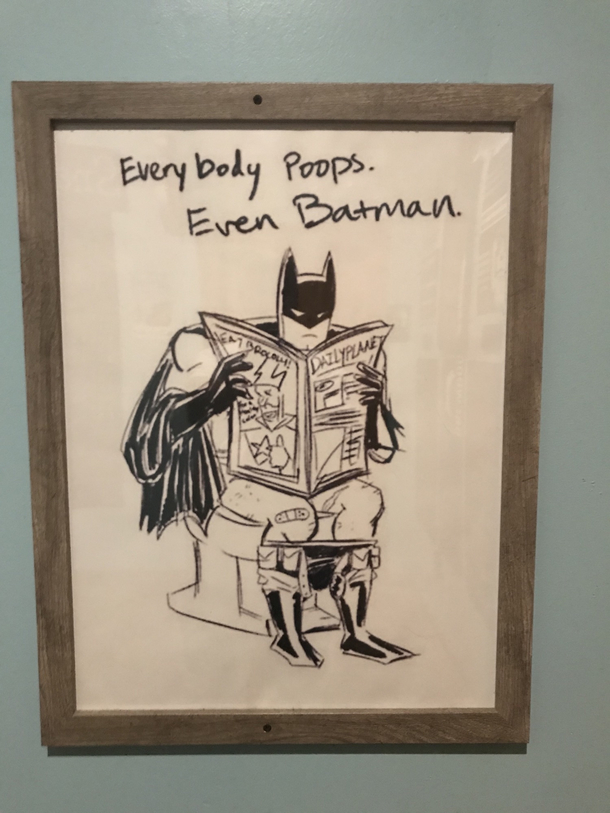 Everybody Poops.
Even Batman.
EAT BROCCOLI!
DAILY PLANET